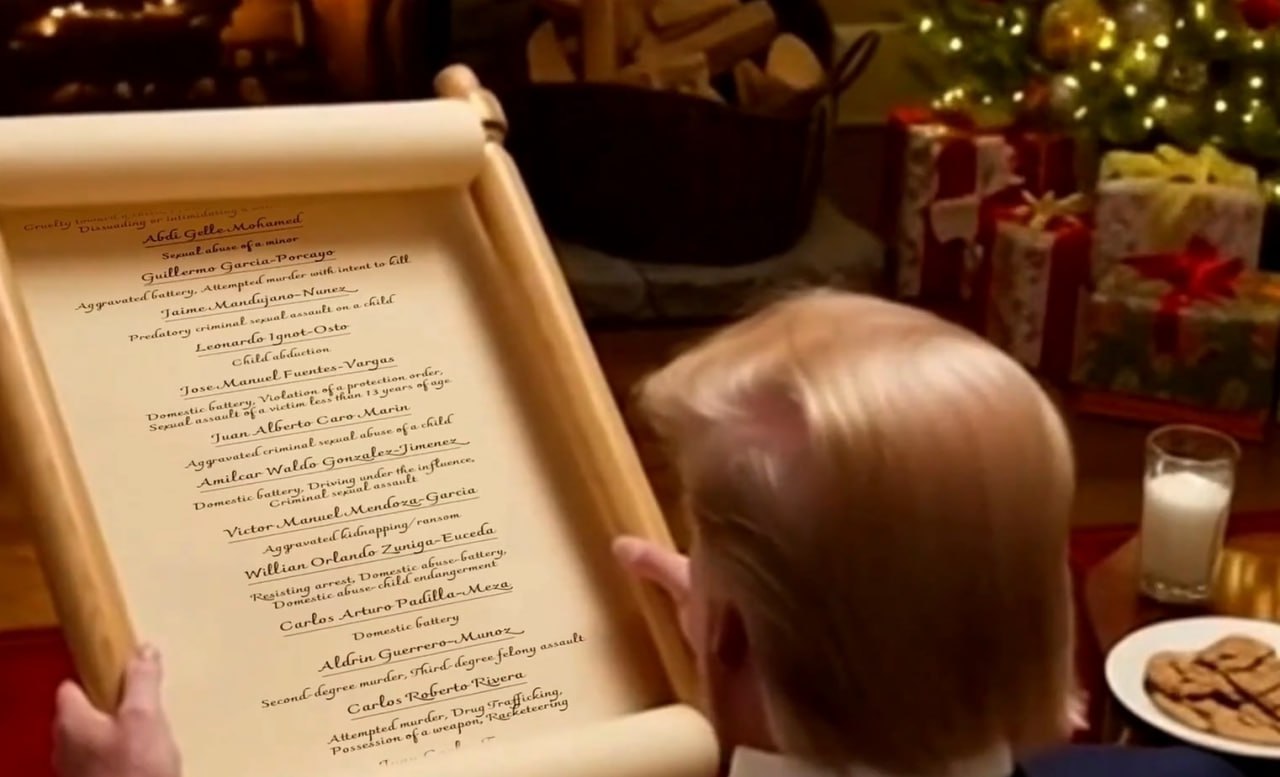 Cruelty toward a
Dissuading or intimidating a
Abdi Gelle Mohamed
Sexual abuse of a minor
Guillermo Garcia-Porcayo
Aggravated battery, Attempted murder with intent to kill
Jaime Mandujano-Nunez
Predatory criminal sexual assault on a child
Leonardo Ignot-Osto
Child abduction
Jose Manuel Fuentes-Vargas
Domestic battery, Violation of a protection order,
Sexual assault of a victim less than 13 years of age
Juan Alberto Caro Marin
Aggravated criminal sexual abuse of a child
Amilcar Waldo Gonzalez-Jimenez
Domestic battery, Driving under the influence,
Criminal sexual assault
Victor Manuel Mendoza-Garcia
Aggravated kidnapping/ransom
Willian Orlando Zuniga-Euceda
Resisting arrest, Domestic abuse-battery,
Domestic abuse-child endangerment
Carlos Arturo Padilla-Meza
Domestic battery
Aldrin Guerrero-Munoz
Second-degree murder, Third-degree felony assault
Carlos Roberto Rivera
Attempted murder, Drug Trafficking,
Possession of a weapon, Racketeering